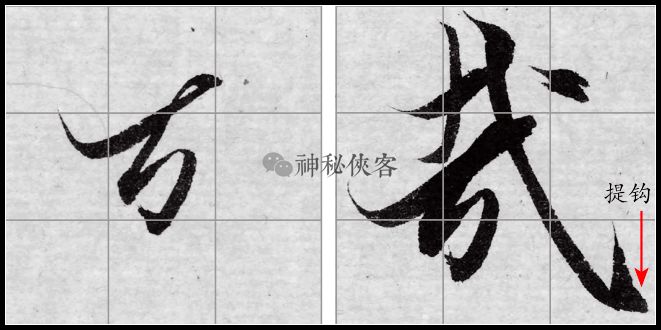 方 哉
神秘侠客
提钩